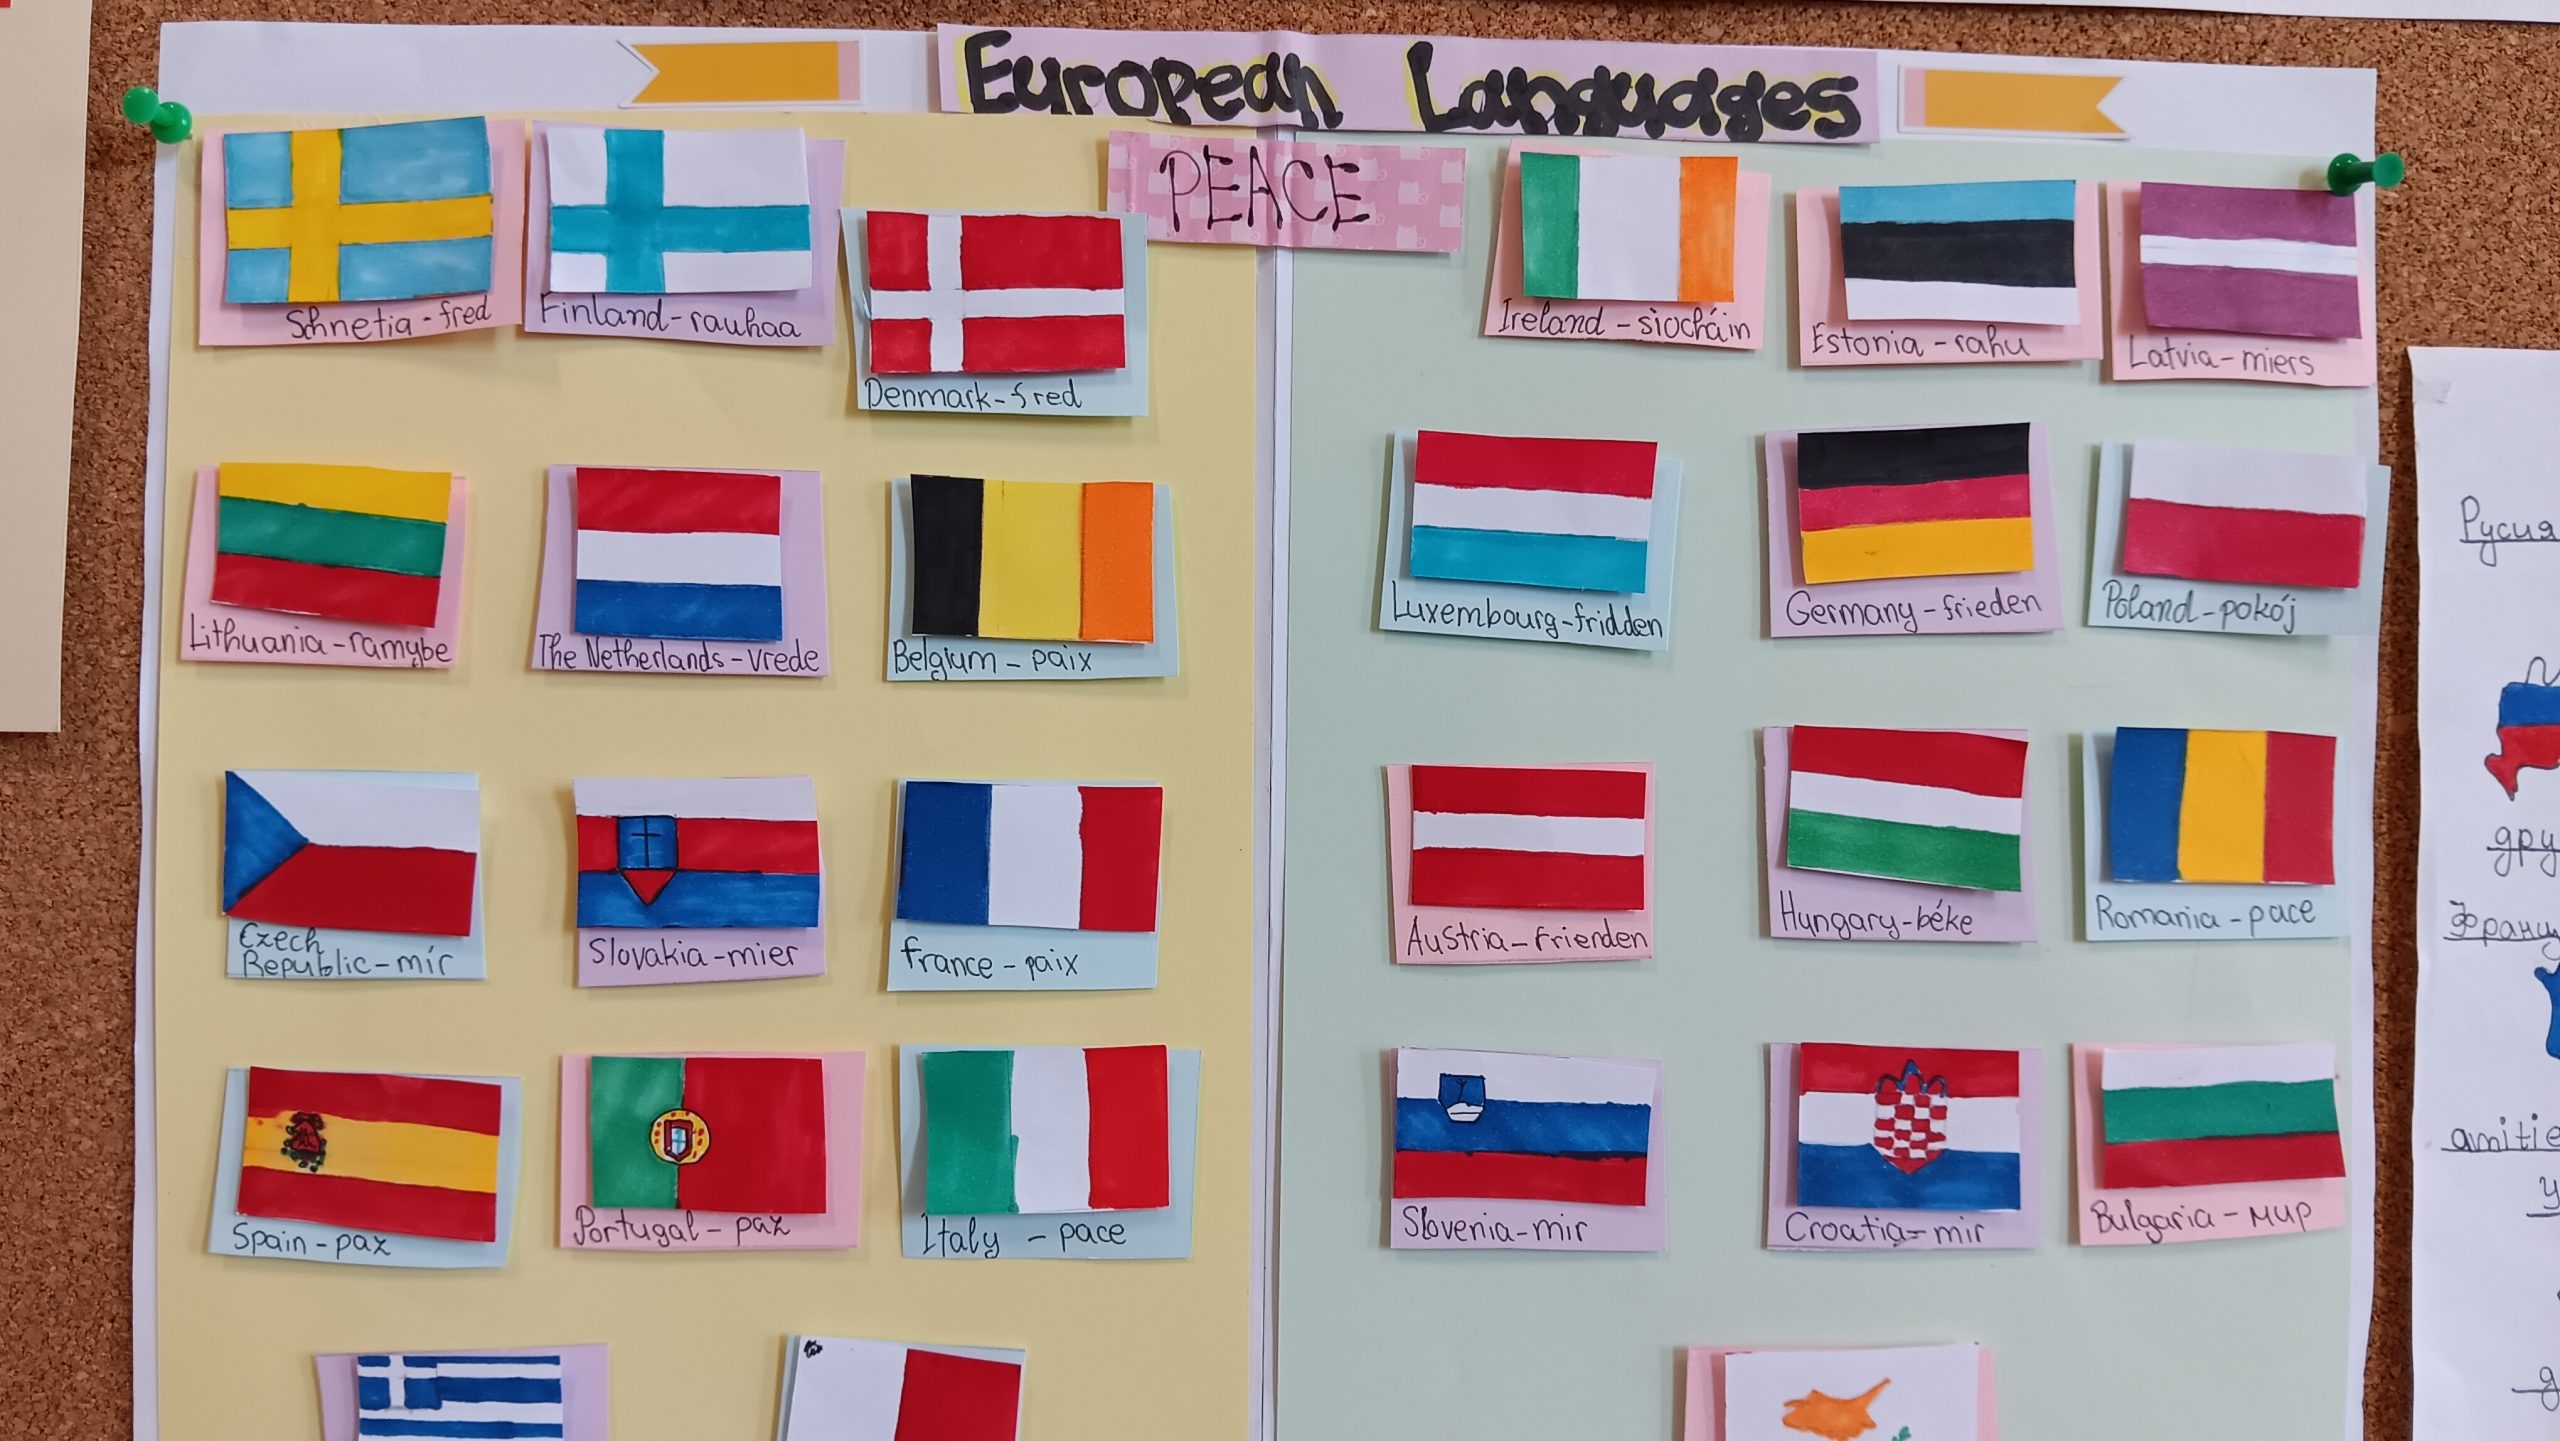 European Languages
PEACE
Shnetia - fred
Finland - rauhaa
Denmark - fred
Ireland - siocháin
Estonia - rahu
Latvia - miers
Lithuania - ramybe
The Netherlands - vrede
Belgium - paix
Luxembourg - fridden
Germany - frieden
Poland - pokój
Czech
Republic - mír
Slovakia - mier
france - paix
Austria - frienden
Hungary - béke
Romania - pace
Spain - paz
Portugal - paz
Italy - pace
Slovenia - mir
Croatia - mir
Bulgaria - мир
Русия
дру
Франц
amitie